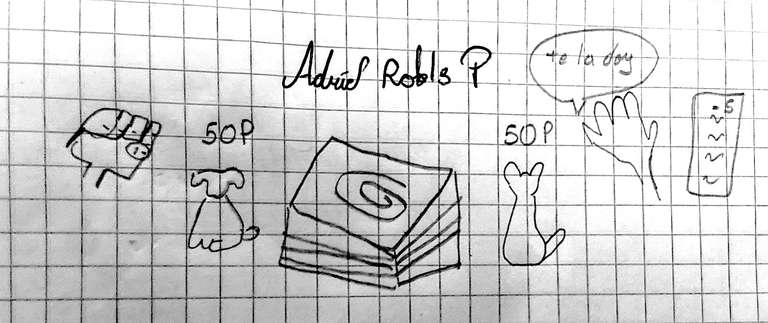 Adriel Robls P
te la doy
50P
50P
5